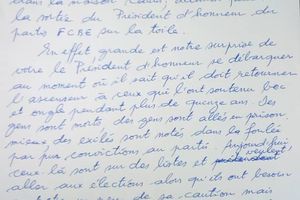 dans la maison
la sortie du Président d'honneur du
parti FCBE sur la toile.
En effet grande est notre surprise de
voire le Président d'honneur se débarquer
au moment où il sait qu'il doit retourner
l'ascenseur à ceux qui l'ont soutenu bec
et ongle pendant plus de quinze ans. Des
gens sont morts des gens sont allés en prison
mieux des exilés sont notés dans la foulée
par pur convictions au parti. Aujourd'hui
ceux là sont sur des listes et veulent
aller aux élections alors qu'ils ont besoin
de sa caution mais